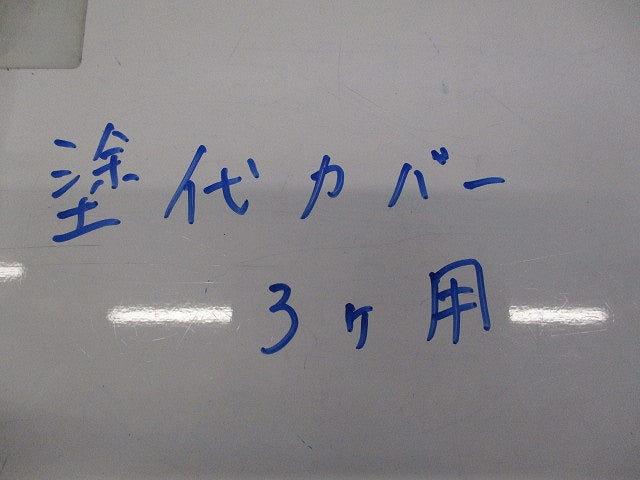 塗代カバー
3ヶ用